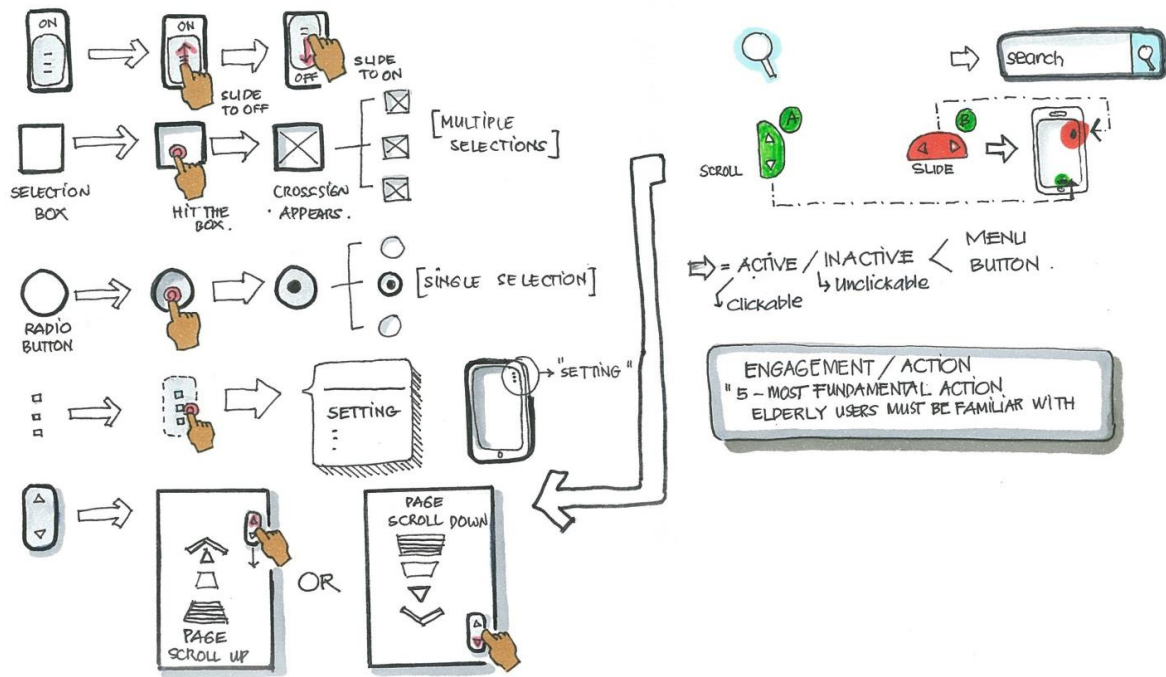 ON
ON
SLIDE
TO OFF
OFF
SLIDE
TO ON
SELECTION
BOX
HIT THE
BOX.
CROSSSIGN
APPEARS.
[MULTIPLE
SELECTIONS]
RADIO
BUTTON
[SINGLE SELECTION]
SETTING
"SETTING"
PAGE
SCROLL UP
OR
PAGE
SCROLL DOWN
search
A
SCROLL
B
SLIDE
= ACTIVE / INACTIVE < MENU
BUTTON.
Clickable
Unclickable
ENGAGEMENT / ACTION
"5 - MOST FUNDAMENTAL ACTION
ELDERLY USERS MUST BE FAMILIAR WITH